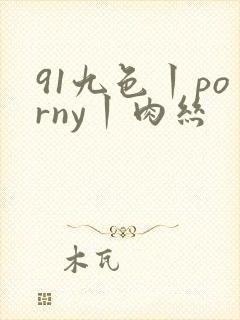 91九色丨po
rny丨肉丝
木瓦